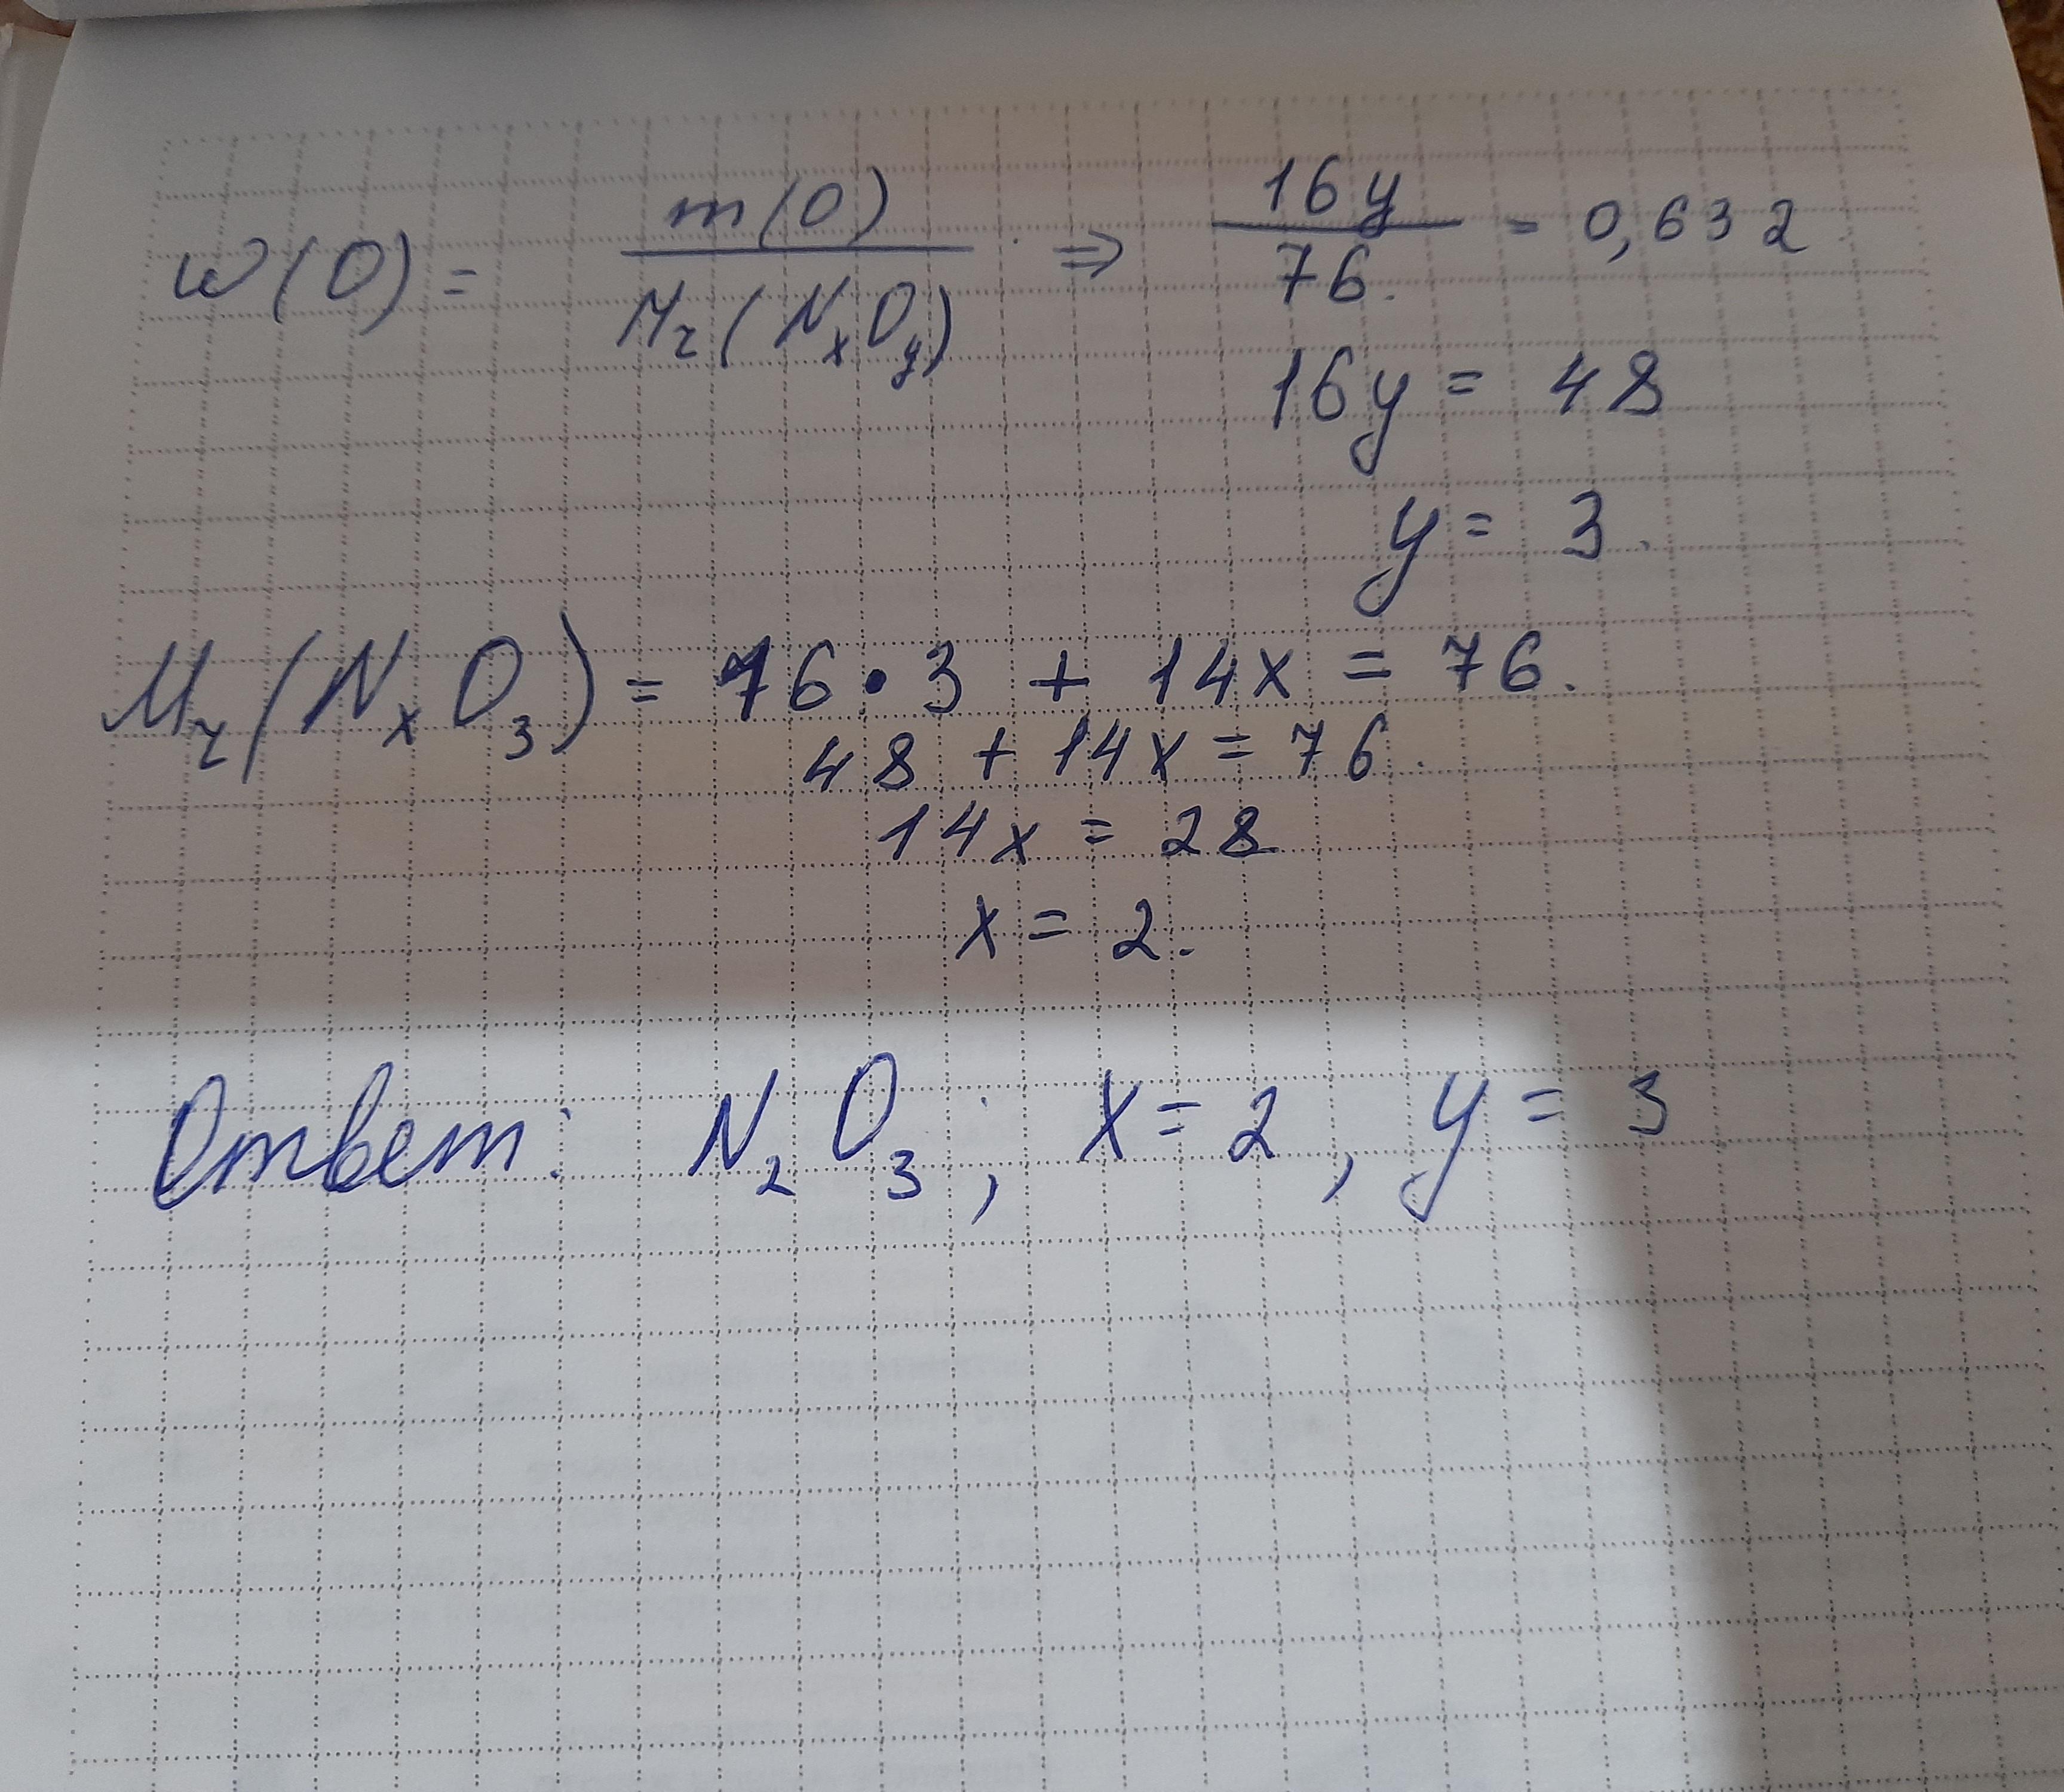 w(O) = m(O) / Mr(NxOy) ⇒ 16y / 76. = 0,632
16y = 48
y = 3.
Mr(NxO3) = 16 • 3 + 14x = 76.
48 + 14x = 76.
14x = 28
x = 2.
Ответ: N2O3; x = 2, y = 3